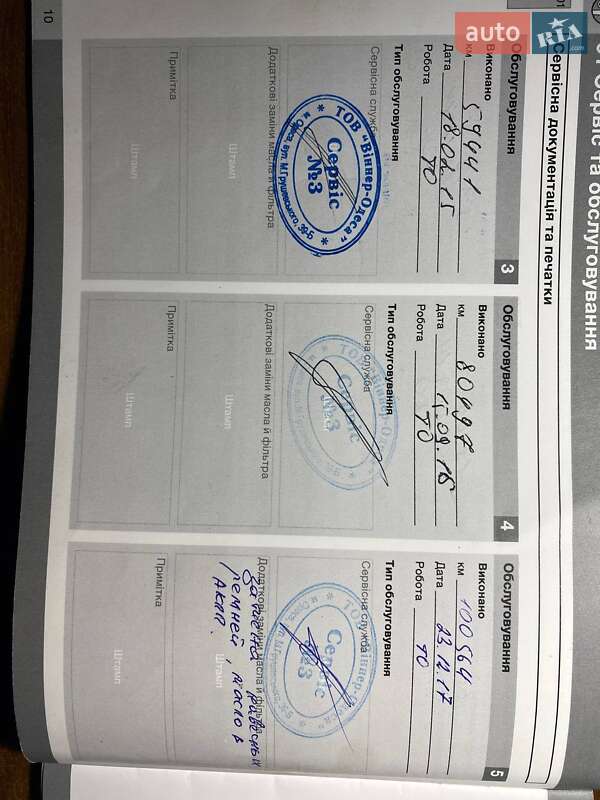 auto RIA.com
Сервіс та обслуговування
Сервісна документація та печатки
Обслуговування 3
Виконано
км 59441
Дата 18.02.15
Робота ТО
Тип обслуговування
Сервісна служба
ТОВ "Віннер-Одеса"
Сервіс
№3
Додаткові заміни масла й фільтра
Штамп
Примітка
Штамп
Обслуговування 4
Виконано
км 80497
Дата 15.09.16
Робота ТО
Тип обслуговування
Сервісна служба
Сервіс
№3
Додаткові заміни масла й фільтра
Штамп
Примітка
Штамп
Обслуговування 5
Виконано
км 100564
Дата 23.12.17
Робота ТО
Тип обслуговування
Сервісна служба
ТОВ "Віннер-Одеса"
Сервіс
№3
Додаткові заміни масла й фільтра
Замена навесных
ремней, масло в
АКПП.
Штамп
Примітка
Штамп
10